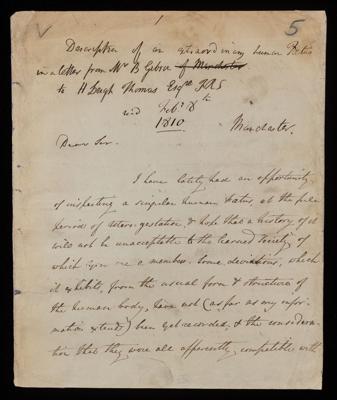 1
5
Description of an extraordinary human Fœtus
in a letter from Mr B Gibson of Manchester
to H Leigh Thomas Esqre FRS
Feby 8th
1810
Manchester.
Dear Sir.
I have lately had an opportunity
of inspecting a singular human fœtus, at the full
period of utero-gestation, & hope that a history of it
will not be unacceptable to the learned Society, of
which you are a member. Some deviations, which
it exhibits, from the usual form & structure of
the human body, have not (as far as my infor-
mation extends) been yet recorded, & the considera-
tion that they were all apparently compatible with